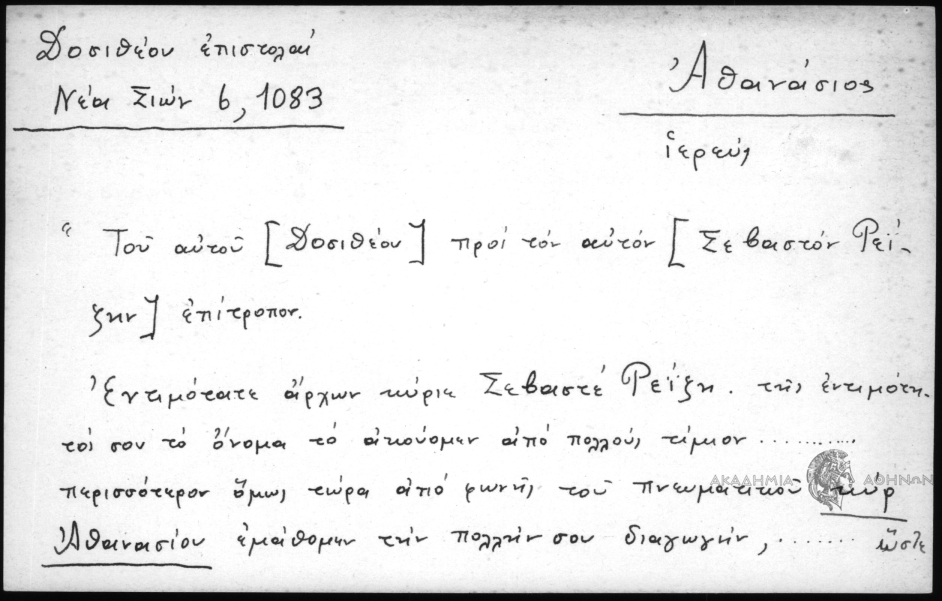 Δοσιθέου ἐπιστολαί
Νέα Σιών 6, 1083
Ἀθανάσιος
ἱερεύς
“ Τοῦ αὐτοῦ [Δοσιθέου] πρός τόν αὐτόν [Σεβαστόν Ρεΐ-
ζην] ἐπίτροπον.
Ἐντιμότατε ἄρχων κύριε Σεβαστέ Ρεΐζη. τῆς ἐντιμότη-
τός σου τό ὄνομα τό ἀκούομεν ἀπό πολλούς τίμιον ...........
περισσότερον ὅμως τώρα ἀπό φωνῆς τοῦ πνευματικοῦ κύρ
Ἀθανασίου ἐμάθομεν τήν πολλήν σου διαγωγήν, ....... ὥστε
ΑΚΑΔΗΜΙΑ ΑΘΗΝΩΝ